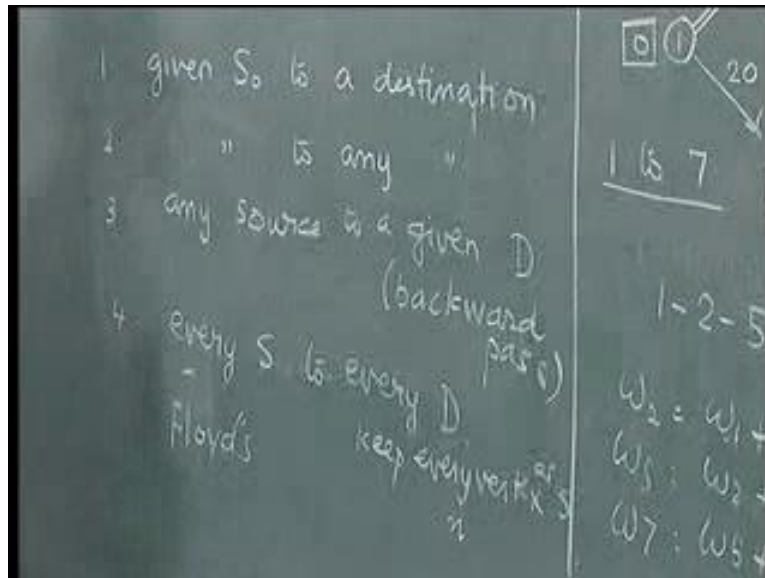 1 given S₀ to a destination
2 " to any "
3 any source to a given D
(backward
pass)
4 every S to every D
- Floyd's keep every vertex as S
n
0 1
20
1 to 7
1-2-5
ω₂ = ω₁ +
ω₅ : ω₂ +
ω7 : ω₅ +